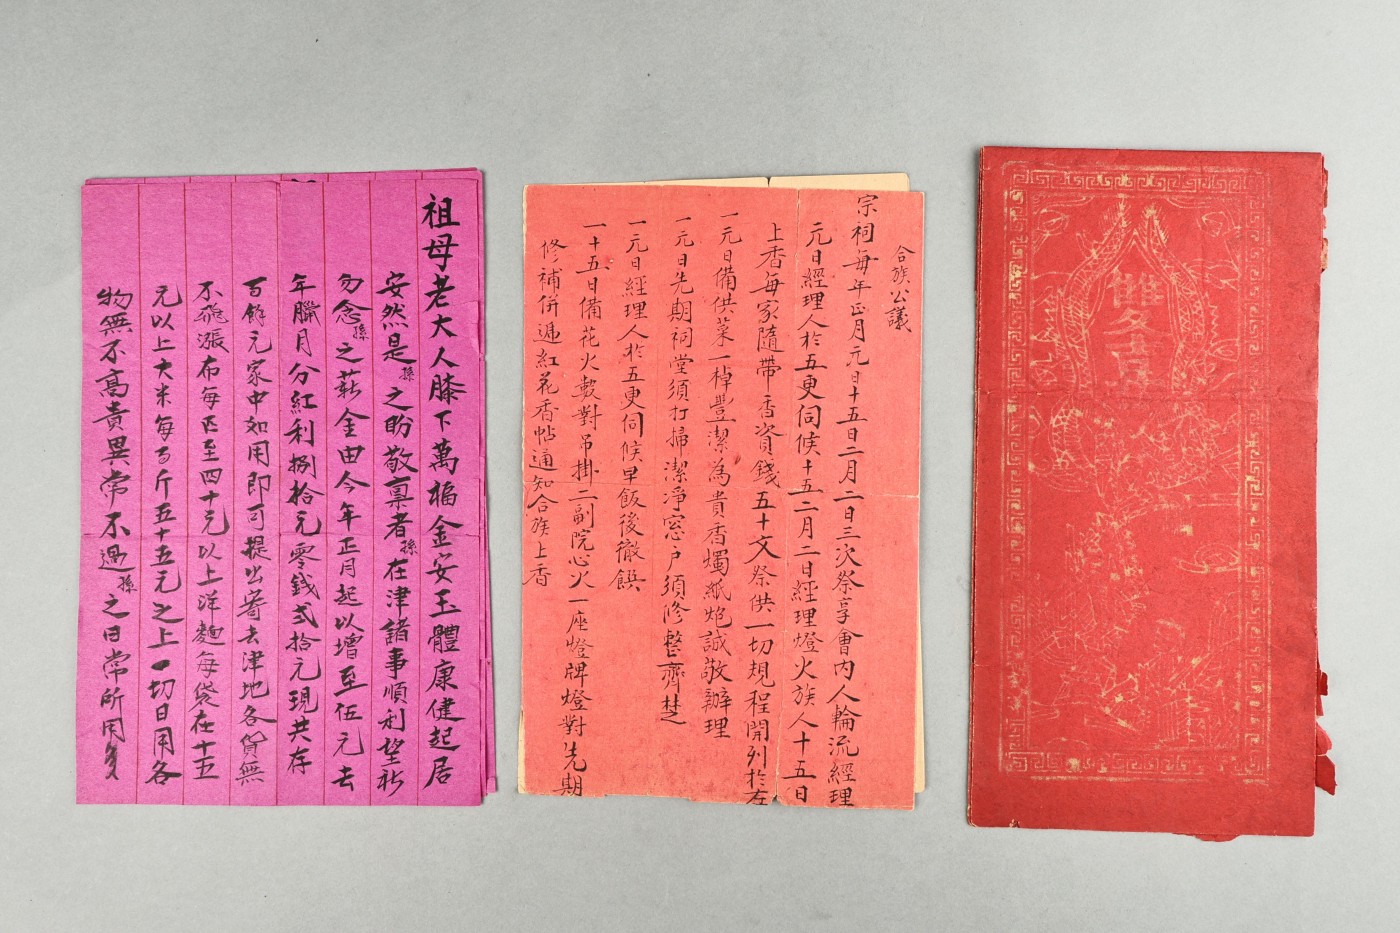 祖母老大人膝下萬福金安玉體康健起居
安然是孫之盼敬稟者孫在津諸事順利望祈
勿念孫之薪金由今年正月起以增至伍元去
年臘月分紅利捌拾元零錢弍拾元現共存
百餘元家中如用即可提出寄去津地各貨無
不飛漲布每疋至四十元以上洋麵每袋在十五
元以上大米每百斤五十五元之上一切日用各
物無不高貴異常不過孫之日常所用多
合族公議
宗祠每年正月元日十五日二月二日三次祭享會內人輪流經理
元日經理人於五更伺候十五二月二日經理燈火族人十五日
上香每家隨帶香資錢五十文祭供一切規程開列於左
一元日備供菜一棹豐潔為貴香燭紙炮誠敬辦理
一元日先期祠堂須打掃潔淨窓户須修整齊楚
一元日經理人於五更伺候早飯後徹饌
一十五日備花火數對吊掛二副院心火一座燈牌燈對先期
修補併遞紅花香帖通知合族上香
雙吉